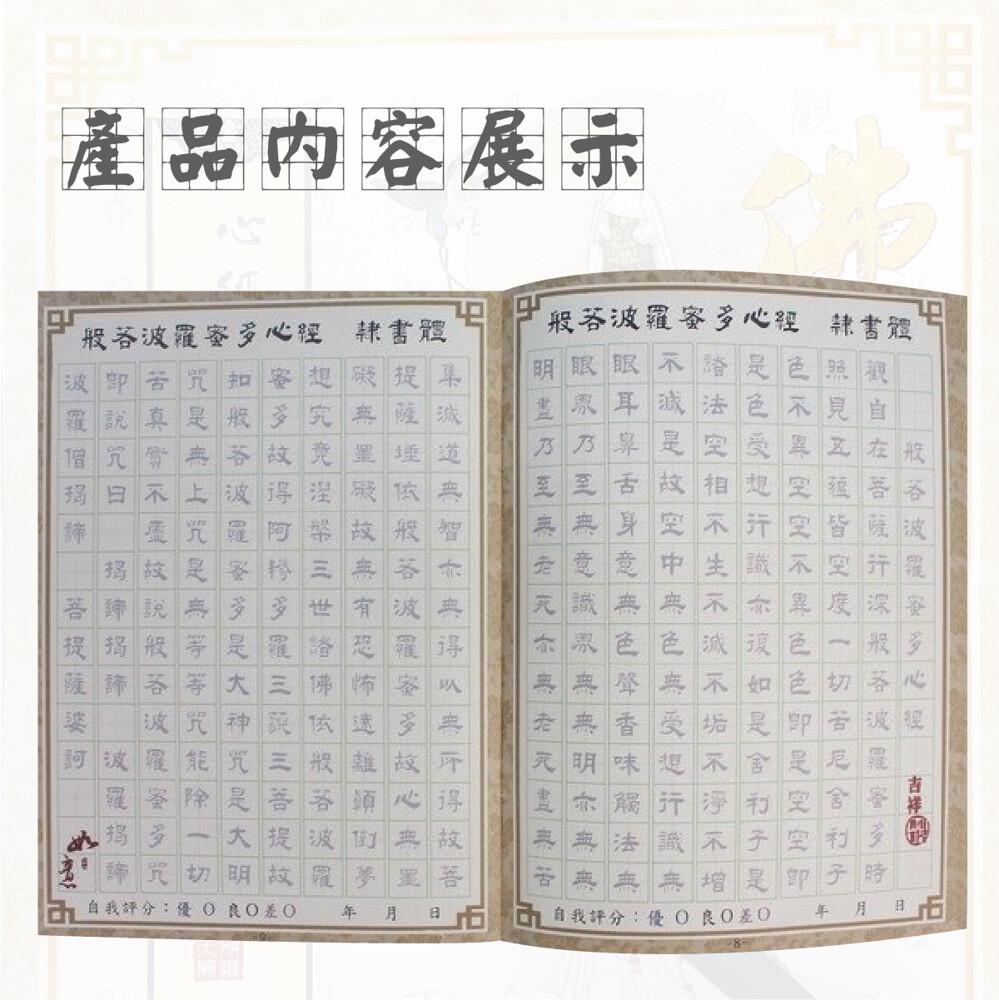 產品內容展示
佛
觀
心經
般若波羅蜜多心經 隸書體
般若波羅蜜多心經
觀自在菩薩行深般若波羅蜜多時
照見五蘊皆空度一切苦厄舍利子
色不異空空不異色色即是空空即
是色受想行識亦復如是舍利子是
諸法空相不生不滅不垢不淨不增
不減是故空中無色無受想行識無
眼耳鼻舌身意無色聲香味觸法無
眼界乃至無意識界無無明亦無無
明盡乃至無老死亦無老死盡無苦
吉祥
自我評分:優〇良〇差〇 年 月 日
-8-
般若波羅蜜多心經 隸書體
集滅道無智亦無得以無所得故菩
提薩埵依般若波羅蜜多故心無罣
礙無罣礙故無有恐怖遠離顛倒夢
想究竟涅槃三世諸佛依般若波羅
蜜多故得阿耨多羅三藐三菩提故
知般若波羅蜜多是大神咒是大明
咒是無上咒是無等等咒能除一切
苦真實不虛故說般若波羅蜜多咒
即說咒曰 揭諦揭諦 波羅揭諦
波羅僧揭諦 菩提薩婆訶
如意
自我評分:優〇良〇差〇 年 月 日
-9-